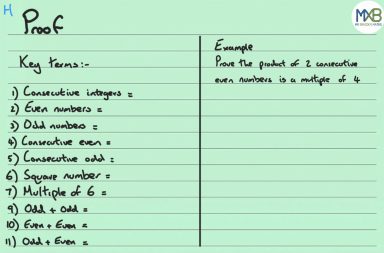 H
Proof
MXB
Key terms:-
1) Consecutive integers =
2) Even numbers =
3) Odd numbers =
4) Consecutive even =
5) Consecutive odd =
6) Square number =
7) Multiple of 6 =
9) Odd + Odd =
10) Even + Even =
11) Odd + Even =
Example
Prove the product of 2 consecutive
even numbers is a multiple of 4